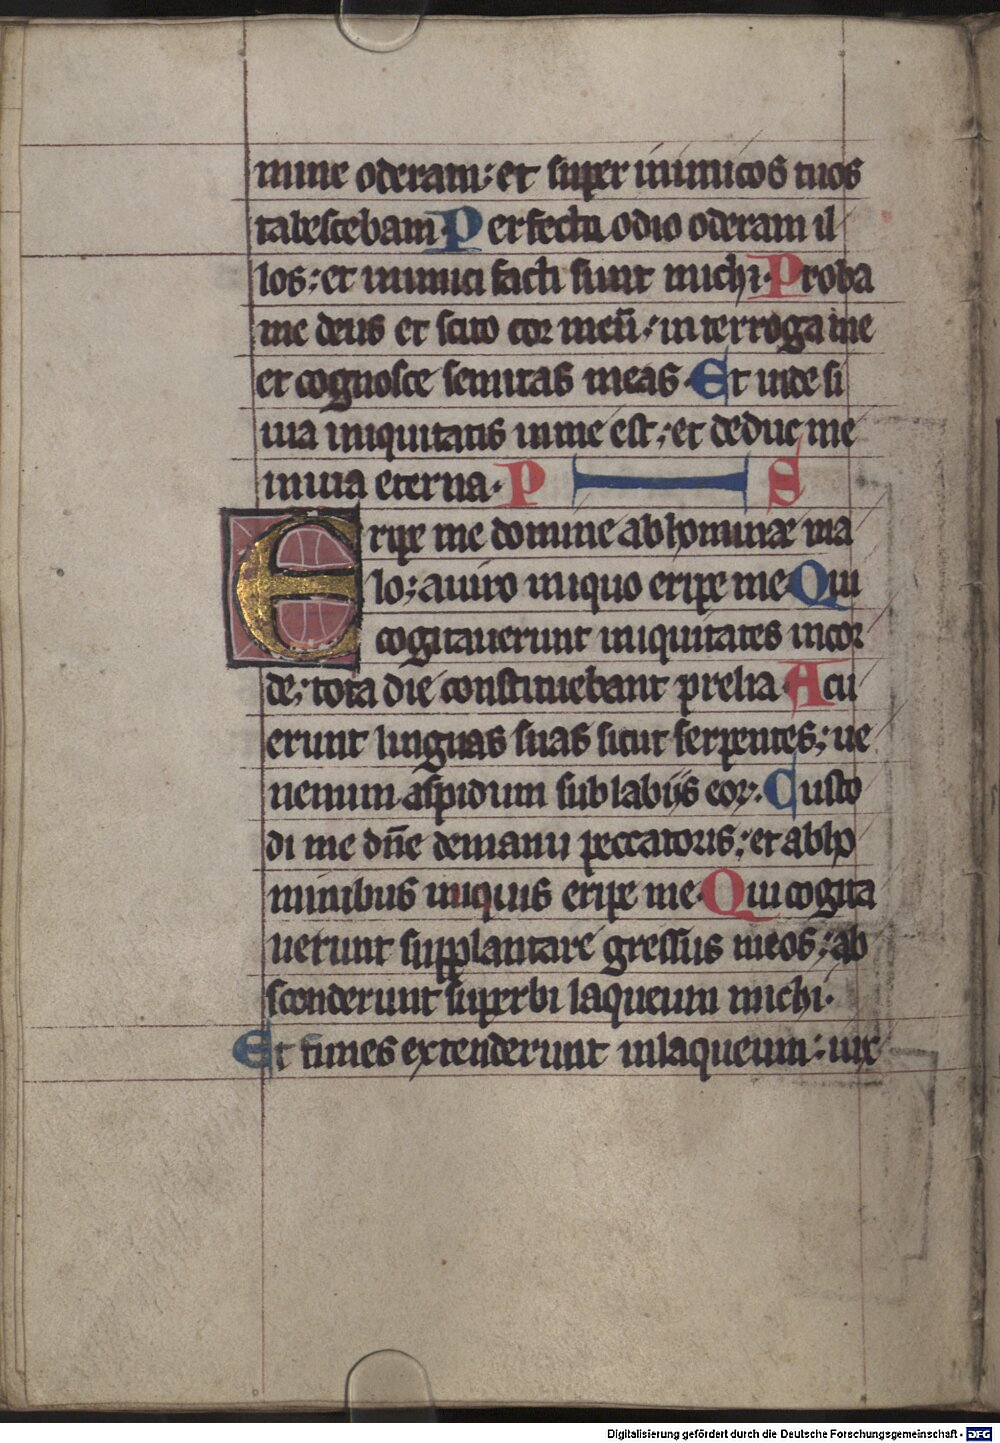 mine oderam: et super inimicos tuos
tabescebam. Perfecto odio oderam il
los: et inimici facti sunt michi. Proba
me deus et scito cor meū: interroga me
et cognosce semitas meas. Et vide si
uia iniquitatis in me est: et deduc me
in uia eterna. P I S
Eripe me domine ab homine ma
lo: a uiro iniquo eripe me. Qui
cogitauerunt iniquitates in cor
de: tota die constituebant prelia. Acu
erunt linguas suas sicut serpentes: ue
nenum aspidum sub labiis eoꝝ. Custo
di me dn̄e de manu peccatoris: et ab ho
minibus iniquis eripe me. Qui cogita
uerunt supplantare gressus meos: ab
sconderunt superbi laqueum michi.
Et funes extenderunt in laqueum: iux
Digitalisierung gefördert durch die Deutsche Forschungsgemeinschaft - DFG